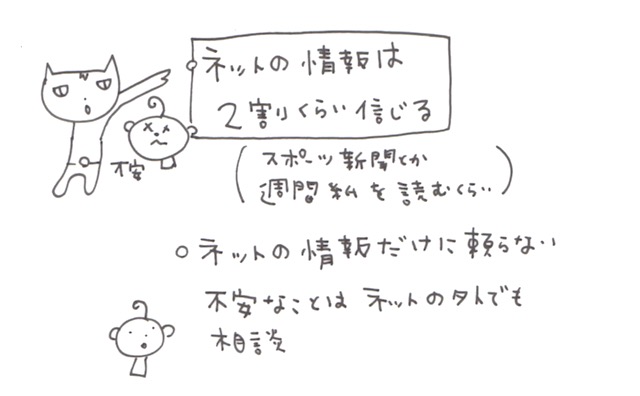 ネットの情報は
2割りくらい信じる
不安
(スポーツ新聞とか
週間私を読むくらい)
○ネットの情報だけに頼らない
不安なことはネットの外でも
相談